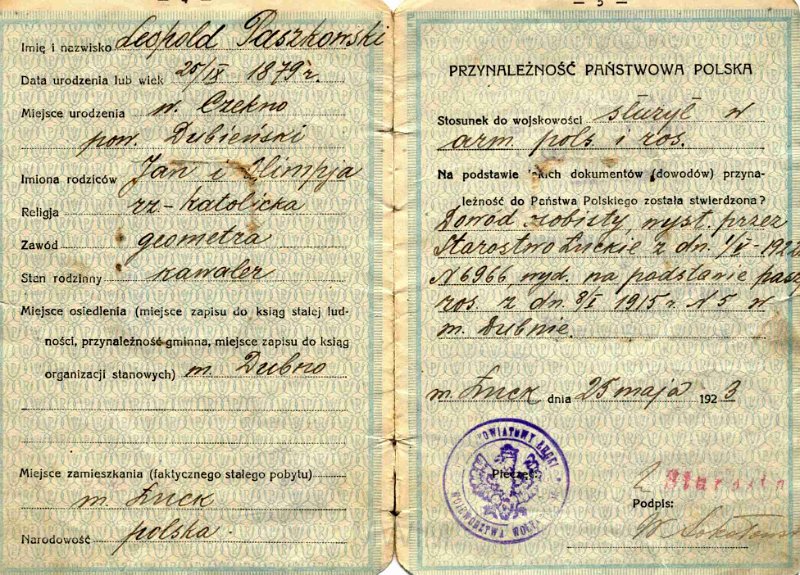 — 4 —
Imię i nazwisko Leopold Paszkowski
Data urodzenia lub wiek 25/IX 1879 r.
Miejsce urodzenia w. Czekno
pow. Dubieński
Imiona rodziców Jan i Olimpja
Religja rz-katolicka
Zawód geometra
Stan rodzinny kawaler
Miejsce osiedlenia (miejsce zapisu do ksiąg stałej lud-
ności, przynależność gminna, miejsce zapisu do ksiąg
organizacji stanowych) m. Dubno
Miejsce zamieszkania (faktycznego stałego pobytu)
m. Łuck
Narodowość polska
— 5 —
PRZYNALEŻNOŚĆ PAŃSTWOWA POLSKA
Stosunek do wojskowości służył w
arm. pols. i ros.
Na podstawie jakich dokumentów (dowodów) przyna-
leżność do Państwa Polskiego została stwierdzona?
Dowód osobisty, wyst. przez
Starostwo Łuckie z dn. 1/V-192
N 6966, wyd. na podstawie pasz
ros. z dn. 8/I 1915 r. N 5 w
m. Dubnie.
m. Łuck dnia 25 maja 1923
POWIATOWY ŁUCKI
WOJEWÓDZTWA
Pieczęć
Starosta
Podpis:
W. Sokołowski